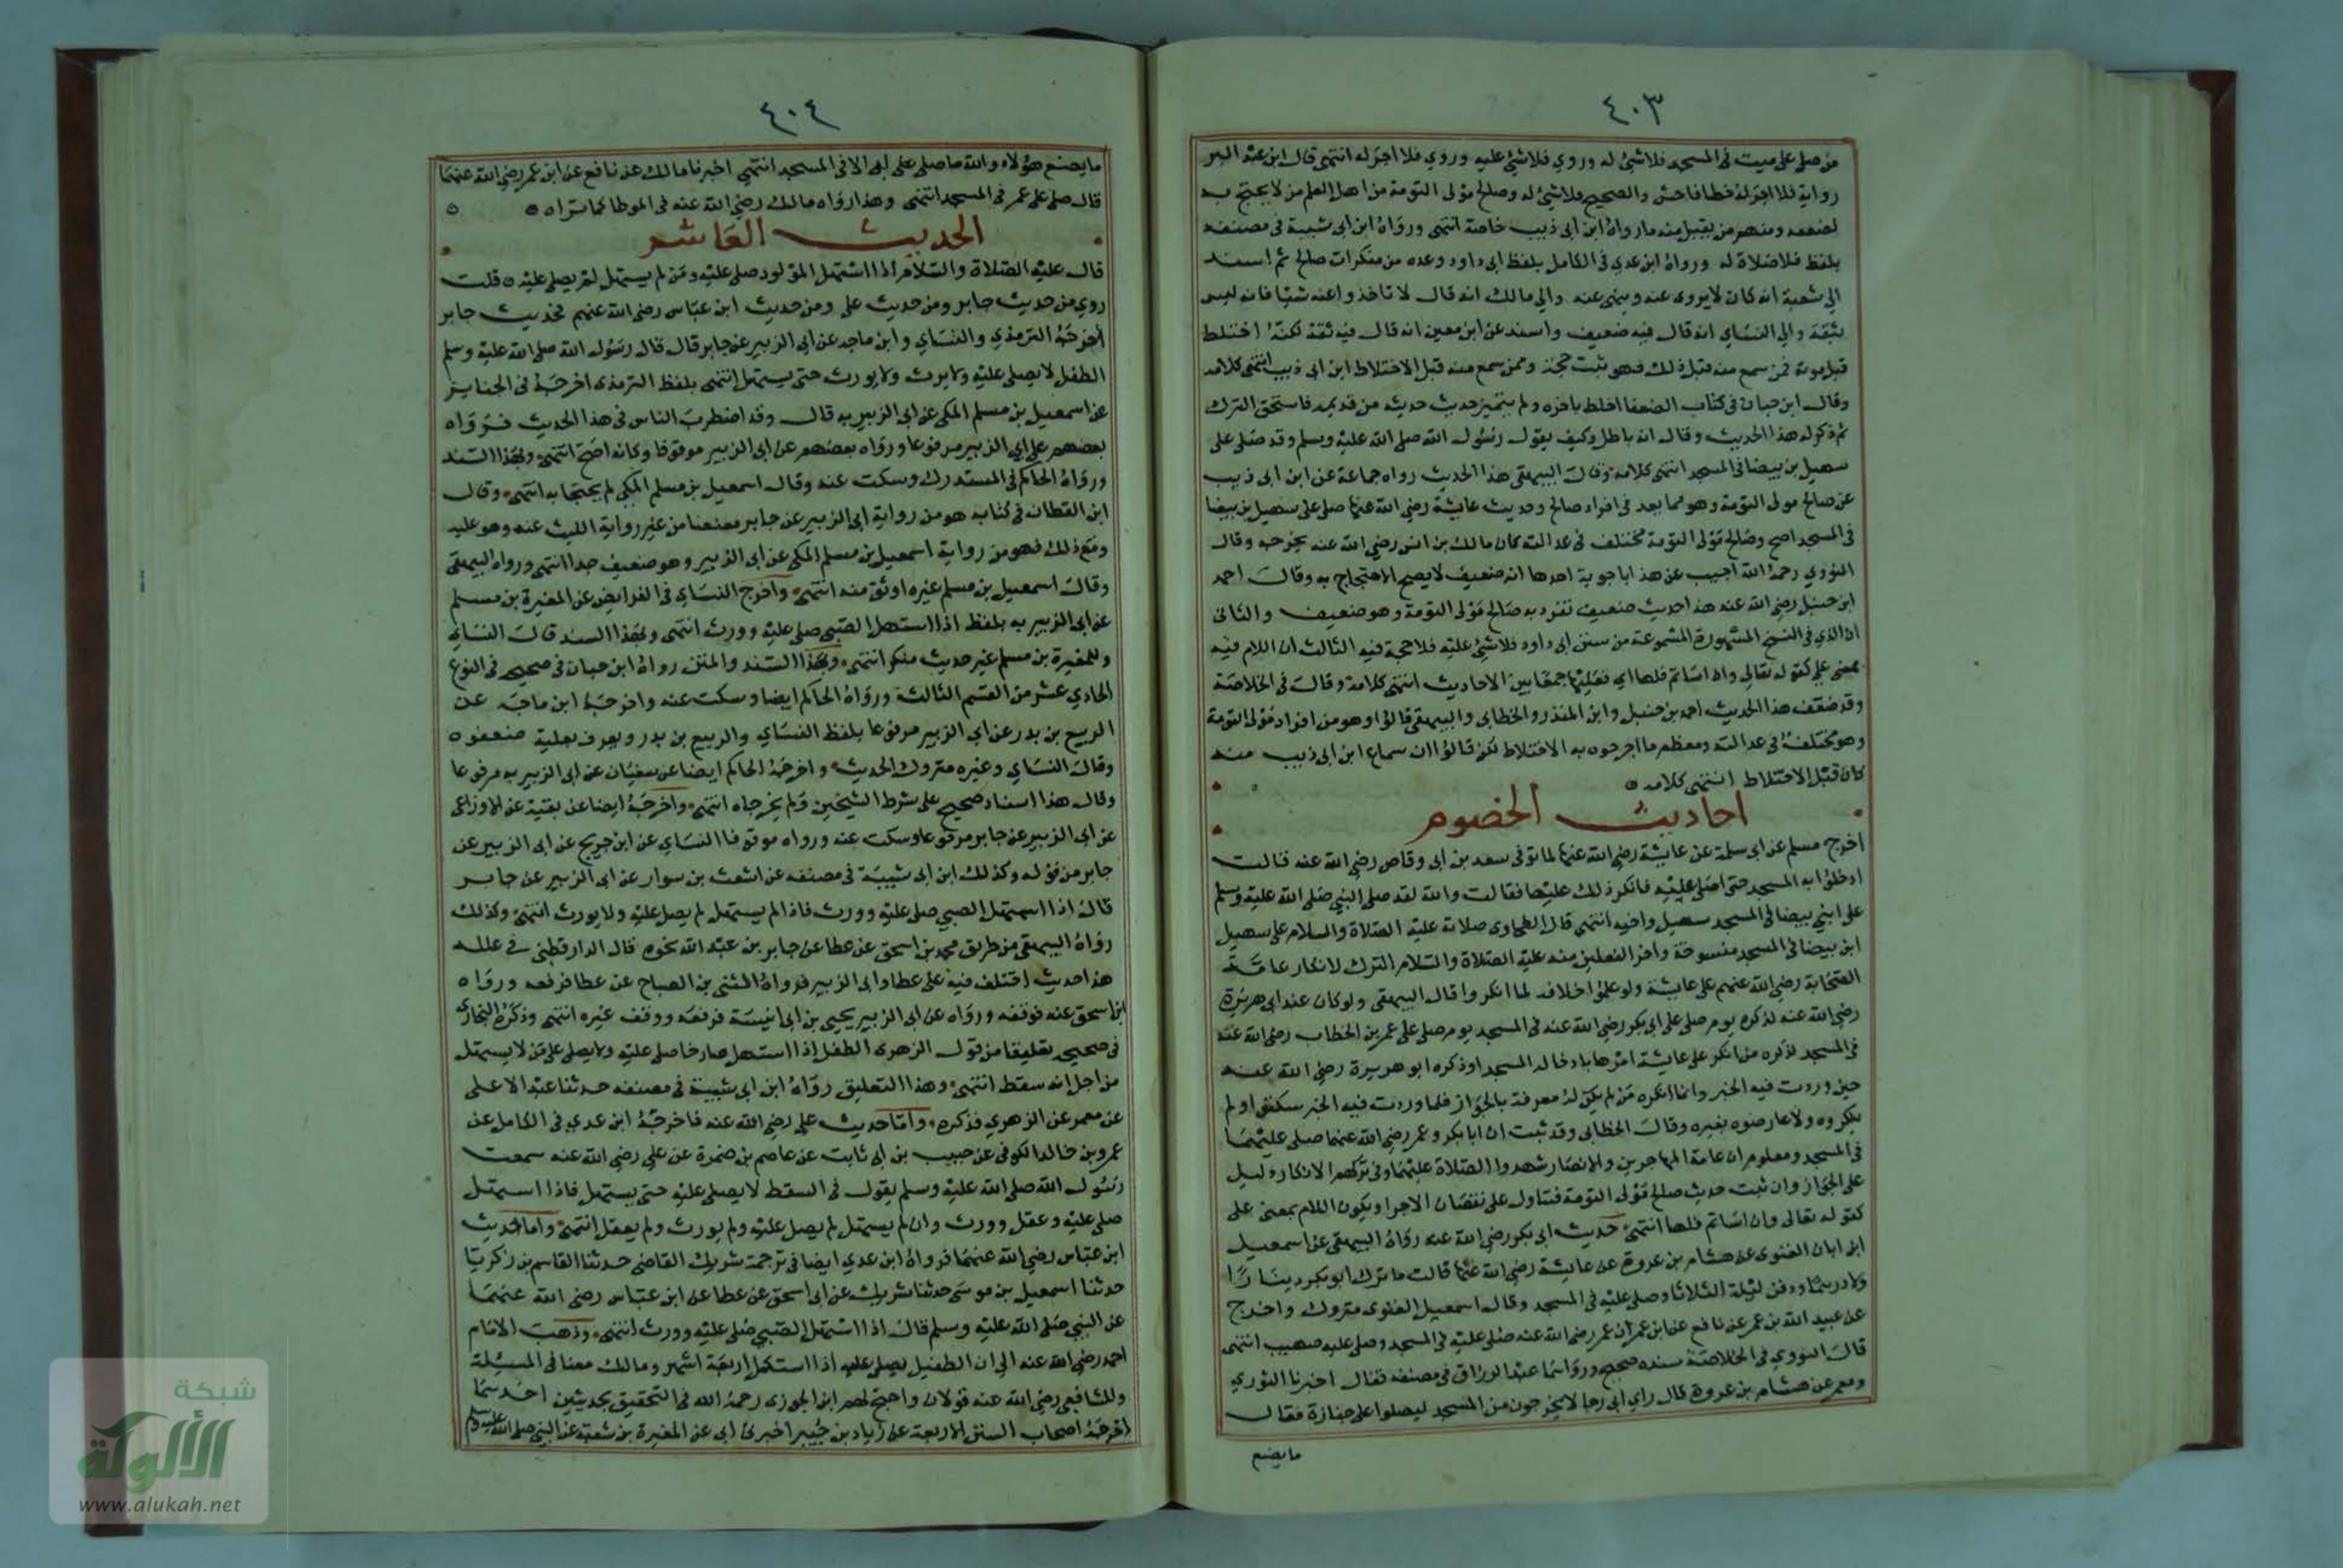 ٤٠٣
من صلى على ميت في المسجد فلا شئ له وروي فلا شئ عليه وروي فلا اجر له انتهى قال ابن عبد البر
رواية فلا اجر له خطا فاحش والصحيح فلا شئ له وصالح مولى التومة من اهل العلم من لا يحتج به
لضعفه ومنهم من يقبل منه ما رواه ابن ابى ذيب خاصة انتهى ورواه ابن ابى شيبة في مصنفه
بلفظ فلا صلاة له ورواه ابن عدي في الكامل بلفظ ابى داود وعده من منكرات صالح ثم اسند
الي شعبة انه كان لا يروى عنه وينهى عنه والي مالك انه قال لا تاخذوا عنه شيا فانه ليس
بثقة والي النساي انه قال فيه ضعيف واسند عن ابن معين انه قال فيه ثقة لكنه اختلط
قبل موته فمن سمع منه قبل ذلك فهو ثبت حجة وممن سمع منه قبل الاختلاط ابن ابى ذيب انتهى كلامه
وقال ابن حبان في كتاب الضعفا اختلط باخره ولم يتميز حديث حديثه من قديمه فاستحق الترك
ثم ذكر له هذا الحديث وقال انه باطل وكيف يقول رسول الله صلى الله عليه وسلم وقد صلى على
سهيل بن بيضا في المسجد انتهى كلامه وقال البيهقي هذا الحديث رواه جماعة عن ابن ابى ذيب
عن صالح مولى التومة وهو مما يعد في افراد صالح وحديث عايشة رضي الله عنها صلى على سهيل بن بيضا
في المسجد اصح وصالح مولى التومة مختلف في عدالته كان مالك بن انس رضي الله عنه يجرحه وقال
النووي رحمه الله اجيب عن هذا باجوبة احدها انه ضعيف لا يصح الاحتجاج به وقال احمد
ابن حنبل رضي الله عنه هذا حديث ضعيف تفرد به صالح مولى التومة وهو ضعيف والثانى
ان الذي في النسخ المشهورة المسموعة من سنن ابى داود فلا شئ عليه فلا حجة فيه الثالث ان اللام فيه
بمعنى على كقوله تعالى وان اساتم فلها اي فعليها جمعا بين الاحاديث انتهى كلامه وقال في الخلاصة
وقد ضعف هذا الحديث احمد بن حنبل وابن المنذر والخطابى والبيهقي قالوا وهو من افراد مولى التومة
وهو مختلف في عدالته ومعظم ما اجرحوه به الاختلاط لكن قالوا ان سماع ابن ابى ذيب منه
كان قبل الاختلاط انتهى كلامه
احاديث الخصوم
اخرج مسلم عن ابى سلمة عن عايشة رضي الله عنها لما توفى سعد بن ابى وقاص رضي الله عنه قالت
ادخلوا به المسجد حتى اصلى عليه فانكر ذلك عليها فقالت والله لقد صلى النبي صلى الله عليه وسلم
على ابنى بيضا في المسجد سهيل واخيه انتهى قال الطحاوى صلاته عليه الصلاة والسلام على سهيل
ابن بيضا في المسجد منسوخة واخر الفعلين منه عليه الصلاة والسلام الترك لانكار عامة
الصحابة رضي الله عنهم على عايشة ولو علموا خلافه لما انكروا قال البيهقي ولو كان عند ابى هريرة
رضي الله عنه لذكره يوم صلى على ابى بكر رضي الله عنه في المسجد يوم صلى على عمر بن الخطاب رضى الله عنه
في المسجد لذكره من انكر على عايشة امرها بادخاله المسجد او ذكره ابو هريرة رضي الله عنه
حين روت فيه الخبر وانما انكره من لم يكن له معرفة بالجواز فلما روت فيه الخبر سكتوا ولم
ينكروه ولا عارضوه بغيره وقال الخطابى وقد ثبت ان ابا بكر وعمر رضي الله عنهما صلى عليهما
في المسجد ومعلوم ان عامة المهاجرين والانصار شهدوا الصلاة عليهما وفي تركهم الانكار دليل
على الجواز وان ثبت حديث صالح مولى التومة فتاول على نقصان الاجر او يكون اللام بمعنى على
كقوله تعالى وان اساتم فلها انتهى حديث ابى بكر رضى الله عنه رواه البيهقي عن اسمعيل
ابن ابان الغنوى عن هشام بن عروة عن عايشة رضي الله عنها قالت ما ترك ابو بكر دينارا
ولا درهما ودفن ليلة الثلاثا وصلى عليه في المسجد وقال اسمعيل الغنوى متروك واخرج
عن عبيد الله بن عمر عن نافع عن ابن عمر ان عمر رضى الله عنه صلى عليه في المسجد وصلى عليه صهيب انتهى
قال النووي في الخلاصة سنده صحيح ورواهما عبد الرزاق في مصنفه فقال اخبرنا الثوري
ومعمر عن هشام بن عروة قال راي ابى رجالا يخرجون من المسجد ليصلوا على جنازة فقال
ما يصنع
٤٠٤
ما يصنع هؤلاء والله ما صلى على ابى الا في المسجد انتهى اخبرنا مالك عن نافع عن ابن عمر رضي الله عنهما
قال صلى على عمر في المسجد انتهى وهذا رواه مالك رضي الله عنه في الموطا كما تراه
الحديث العاشر
قال عليه الصلاة والسلام اذا استهل المولود صلى عليه ومن لم يستهل لم يصلى عليه قلت
روي من حديث جابر ومن حديث على ومن حديث ابن عباس رضي الله عنهم فحديث جابر
اخرجه الترمذي والنساي وابن ماجه عن ابى الزبير عن جابر قال قال رسول الله صلى الله عليه وسلم
الطفل لا يصلى عليه ولا يرث ولا يورث حتى يستهل انتهى بلفظ الترمذى اخرجه في الجنايز
عن اسمعيل بن مسلم المكى عن ابى الزبير به قال وقد اضطرب الناس في هذا الحديث فرواه
بعضهم على ابي الزبير مرفوعا ورواه بعضهم عن ابى الزبير موقوفا وكانه اصح انتهى وبهذا السند
ورواه الحاكم في المستدرك وسكت عنه وقال اسمعيل بن مسلم المكي لم يحتجا به انتهى وقال
ابن القطان في كتابه هو من رواية ابى الزبير عن جابر معنعنا من غير رواية الليث عنه وهو عليه
ومع ذلك فهو من رواية اسمعيل بن مسلم المكى عن ابى الزبير وهو ضعيف جدا انتهى ورواه البيهقي
وقال اسمعيل بن مسلم غيره اوثق منه انتهى واخرج النساي في الفرايض عن المغيرة بن مسلم
عن ابى الزبير به بلفظ اذا استهل الصبي صلى عليه وورث انتهى وبهذا السند قال النساي
وللمغيرة بن مسلم غير حديث منكر انتهى وبهذا السند والمتن رواه ابن حبان في صحيحه في النوع
الحادي عشر من القسم الثالث ورواه الحاكم ايضا وسكت عنه واخرجه ابن ماجه عن
الربيع بن بدر عن ابي الزبير مرفوعا بلفظ النساي والربيع بن بدر ويعرف بعليلة ضعفوه
وقال النساي وغيره متروك الحديث واخرجه الحاكم ايضا عن سفيان عن ابى الزبير به مرفوعا
وقال هذا اسناد صحيح على شرط الشيخين ولم يخرجاه انتهى واخرجه ايضا عن بقية عن الاوزاعى
عن ابى الزبير عن جابر مرفوعا وسكت عنه ورواه موقوفا النساي عن ابن جريج عن ابى الزبير عن
جابر من قوله وكذلك ابن ابى شيبة في مصنفه عن اشعث بن سوار عن ابى الزبير عن جابر
قال اذا استهل الصبي صلى عليه وورث فاذا لم يستهل لم يصل عليه ولا يورث انتهى وكذلك
رواه البيهقي من طريق محمد بن اسحق عن عطا عن جابر بن عبد الله نحوه قال الدارقطنى في علله
هذا حديث اختلف فيه على عطا وابى الزبير فرواه المثنى بن الصباح عن عطا فرفعه ورواه
ابن اسحق عنه فوقفه ورواه عن ابى الزبير يحيى بن ابى انيسة فرفعه ووقف غيره انتهى وذكره البخارى
في صحيحه تعليقا من قول الزهرى الطفل اذا استهل صارخا صلى عليه ولا يصلى على من لا يستهل
من اجل انه سقط انتهى وهذا التعليق رواه ابن ابى شيبة في مصنفه حدثنا عبد الاعلى
عن معمر عن الزهري فذكره واما حديث على رضي الله عنه فاخرجه ابن عدي في الكامل عن
عمرو بن خالد الكوفى عن حبيب بن ابى ثابت عن عاصم بن ضمرة عن على رضي الله عنه سمعت
رسول الله صلى الله عليه وسلم يقول في السقط لا يصلى عليه حتى يستهل فاذا استهل
صلى عليه وعقل وورث وان لم يستهل لم يصل عليه ولم يورث ولم يعقل انتهى واما حديث
ابن عباس رضي الله عنهما فرواه ابن عدي ايضا في ترجمة شريك القاضى حدثنا القاسم بن زكريا
حدثنا اسمعيل بن موسى حدثنا شريك عن ابى اسحق عن عطا عن ابن عباس رضي الله عنهما
عن النبي صلى الله عليه وسلم قال اذا استهل الصبي صلى عليه وورث انتهى وذهب الامام
احمد رضي الله عنه الى ان الطفيل يصلى عليه اذا استكمل اربعة اشهر ومالك معنا في المسئلة
وللشافعى رضي الله عنه قولان واحتج لهم ابن الجوزى رحمه الله في التحقيق بحديثين احدهما
اخرجه اصحاب السنن الاربعة عن زياد بن جبير اخبرني ابى عن المغيرة بن شعبة عن النبي صلى الله عليه وسلم
شبكة
الألوكة
www.alukah.net